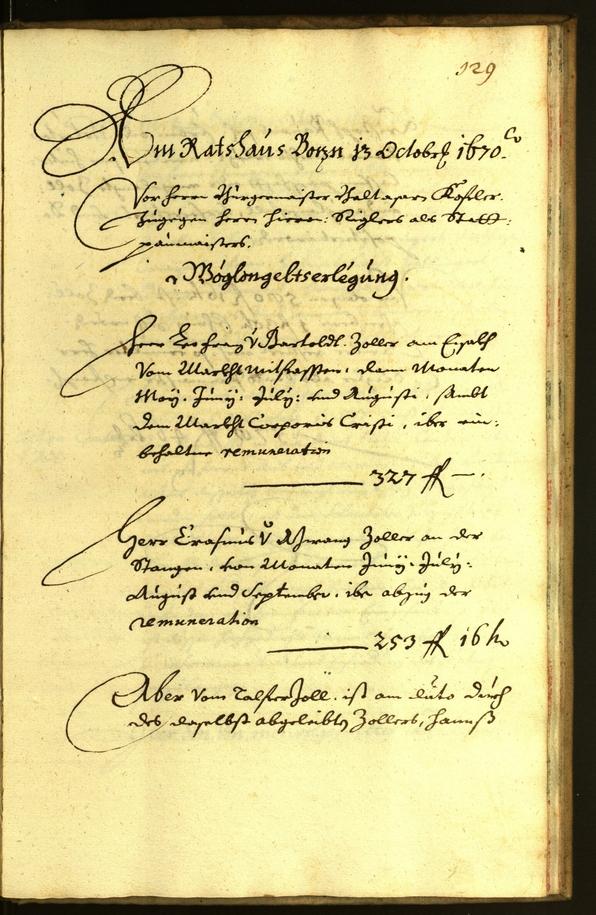 129
Am Ratshaus Bozn 13 Octobr 1670.
Vor herrn Burgermaister Balthasarn Kofler.
Zugegen herrn Hieron: Riglers als Statt:
paumaisters.
Wöglongeltserlegung.
Herr Leo Franz v Bartoldi Zoller am Eysakh
Vom Markht mitfassten, dann Monaten
Maÿ. Junÿ. Julÿ: und Augusti, sambt
dem Markht Corporis Cristi, iber ein:
behaltne remuneration
327 ff —.
Herr Erasmus v Azwang Zoller an der
Stangen, von Monaten Junÿ. Julÿ:
August und September, ibr abzug der
remuneration
253 ff 16 h
Aber vom Talferzoll ist am dato durch
des daselbst abgeleibtn Zollers, Hannß